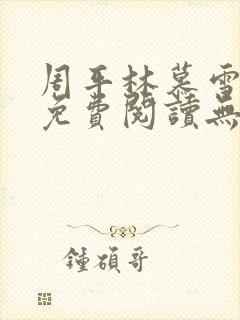 周平林慕雪
免費閱讀無
鍾碩哥